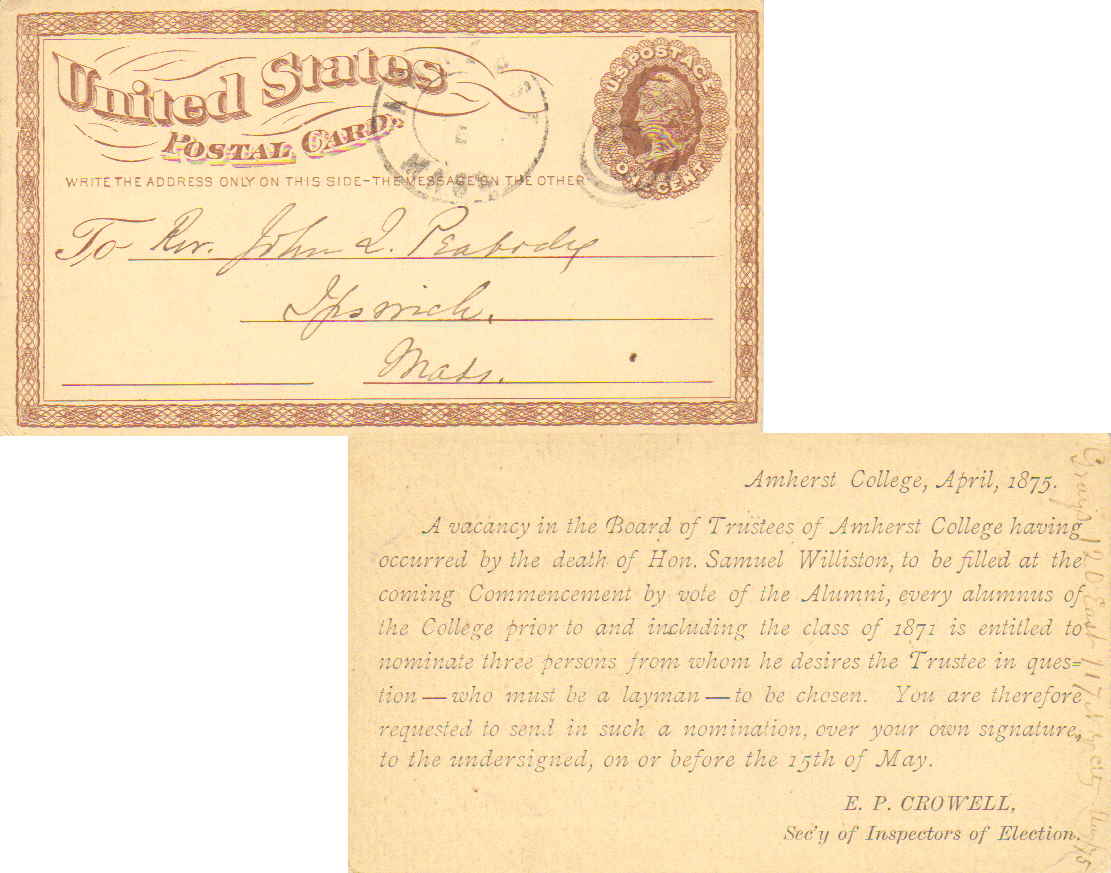 United States
POSTAL CARD
WRITE THE ADDRESS ONLY ON THIS SIDE-THE MESSAGE ON THE OTHER
U.S. POSTAGE
ONE CENT
MASS.
To Rev. John Q. Peabody
Ipswich,
Mass.
Amherst College, April, 1875.
A vacancy in the Board of Trustees of Amherst College having
occurred by the death of Hon. Samuel Williston, to be filled at the
coming Commencement by vote of the Alumni, every alumnus of
the College prior to and including the class of 1871 is entitled to
nominate three persons from whom he desires the Trustee in ques=
tion—who must be a layman—to be chosen. You are therefore
requested to send in such a nomination, over your own signature,
to the undersigned, on or before the 15th of May.
E. P. CROWELL,
Sec'y of Inspectors of Election.
120 East 117